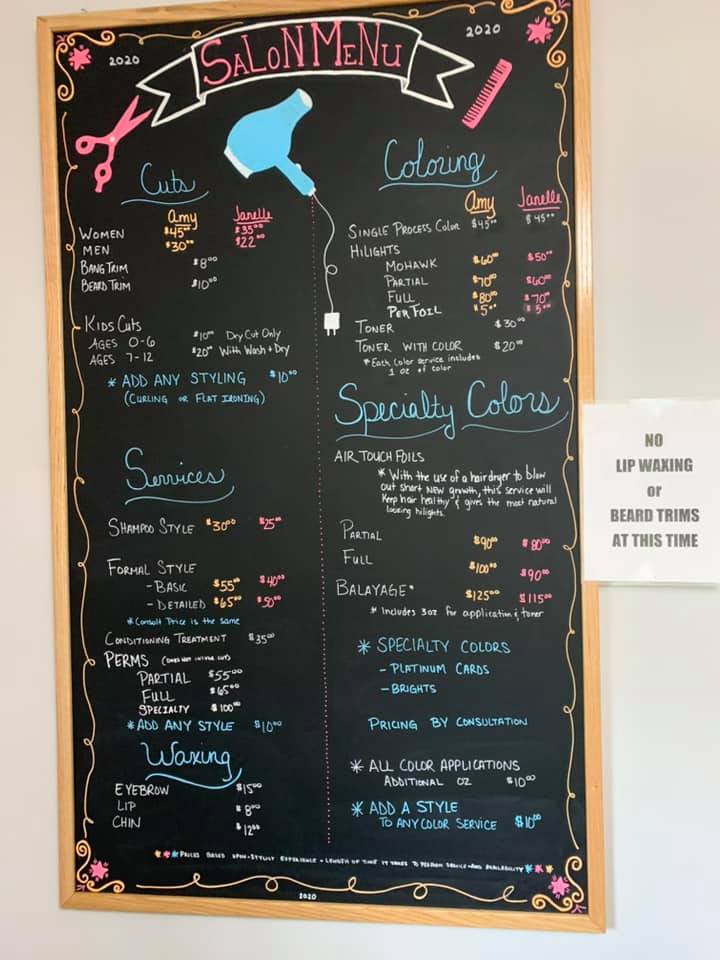 2020
SALON MENU
2020
Cuts
Amy Janelle
WOMEN $45⁰⁰ $35⁰⁰
MEN $30⁰⁰ $22⁰⁰
BANG TRIM $8⁰⁰
BEARD TRIM $10⁰⁰
KIDS CUTS
AGES 0-6 $10⁰⁰ Dry Cut Only
AGES 7-12 $20⁰⁰ With Wash + Dry
* ADD ANY STYLING $10⁰⁰
(CURLING OR FLAT IRONING)
Services
SHAMPOO STYLE $30⁰⁰ $25⁰⁰
FORMAL STYLE
- BASIC $55⁰⁰ $40⁰⁰
- DETAILED $65⁰⁰ $50⁰⁰
* Consult Price is the same
CONDITIONING TREATMENT $35⁰⁰
PERMS (DOES NOT INCLUDE CUT)
PARTIAL $55⁰⁰
FULL $65⁰⁰
SPECIALTY $100⁰⁰
* ADD ANY STYLE $10⁰⁰
Waxing
EYEBROW $15⁰⁰
LIP $8⁰⁰
CHIN $12⁰⁰
Coloring
Amy Janelle
SINGLE PROCESS COLOR $45⁰⁰ $45⁰⁰
HILIGHTS
MOHAWK $60⁰⁰ $50⁰⁰
PARTIAL $70⁰⁰ $60⁰⁰
FULL $80⁰⁰ $70⁰⁰
PER FOIL $5⁰⁰ $5⁰⁰
TONER $30⁰⁰
TONER WITH COLOR $20⁰⁰
* Each color service includes
1 oz of color
Specialty Colors
AIR TOUCH FOILS
* With the use of a hairdryer to blow
out short NEW growth, this service will
keep hair healthy & gives the most natural
looking hilights.
PARTIAL $90⁰⁰ $80⁰⁰
FULL $100⁰⁰ $90⁰⁰
BALAYAGE* $125⁰⁰ $115⁰⁰
* Includes 3oz for application & toner
* SPECIALTY COLORS
- PLATINUM CARDS
- BRIGHTS
PRICING BY CONSULTATION
* ALL COLOR APPLICATIONS
ADDITIONAL OZ $10⁰⁰
* ADD A STYLE
TO ANY COLOR SERVICE $10⁰⁰
PRICES BASED UPON • STYLIST EXPERIENCE • LENGTH OF TIME IT TAKES TO PERFORM SERVICE • AND AVAILABILITY
2020
NO
LIP WAXING
or
BEARD TRIMS
AT THIS TIME